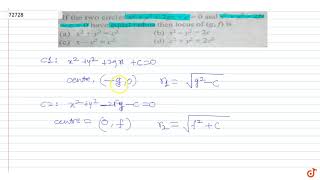 72728
If the two circles x² + y² + 2gx + c = 0 and x² + y² − 2fy
− c = 0 have equal radius then locus of (g, f) is
(a) x² + y² = c² (b) x² − y² = 2c
(c) x − y² = c² (d) x² + y² = 2c²
C1: x² + y² + 2gx + c = 0
centre, (−g, 0) r₁ = √g² − c
C2: x² + y² − 2fy − c = 0
centre = (0, f) r₂ = √f² + c